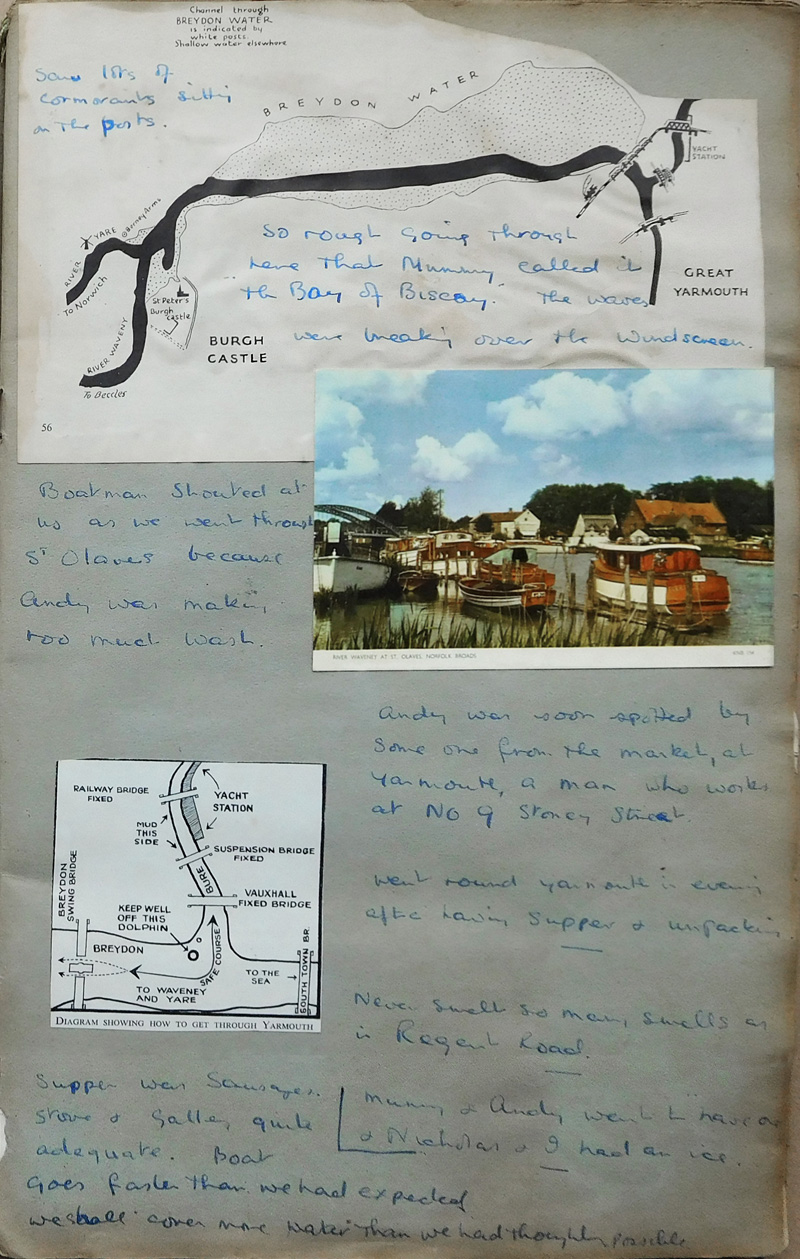 Channel through
BREYDON WATER
is indicated by
white posts.
Shallow water elsewhere
Saw lots of
cormorants sitting
on the posts.
BREYDON WATER
YACHT
STATION
RIVER YARE
Berney Arms
To Norwich
St Peter's
Burgh
Castle
RIVER WAVENY
To Beccles
BURGH
CASTLE
GREAT
YARMOUTH
So rough going through
here that Mummy called it
"the Bay of Biscay." The waves
were breaking over the windscreen.
56
Boatman shouted at
us as we went through
St Olaves because
Andy was making
too much wash.
RIVER WAVENEY AT ST. OLAVES, NORFOLK BROADS
Andy was soon spotted by
some one from the market, at
Yarmouth, a man who works
at No 9 Stoney Street.
RAILWAY BRIDGE
FIXED
YACHT
STATION
MUD
THIS
SIDE
SUSPENSION BRIDGE
FIXED
BURE
BREYDON
SWING BRIDGE
VAUXHALL
FIXED BRIDGE
KEEP WELL
OFF THIS
DOLPHIN
BREYDON
SAFE COURSE
TO THE
SEA
SOUTH TOWN BR.
TO WAVENEY
AND YARE
DIAGRAM SHOWING HOW TO GET THROUGH YARMOUTH
Went round Yarmouth in evening
after having supper & unpacking.
Never smelt so many smells as
in Regent Road.
Supper was Sausages.
Stove & Galley quite
adequate. Boat
goes faster than we had expected
we shall cover more water than we had thought possible
Mummy & Andy went to have one
& Nicholas & I had an ice.